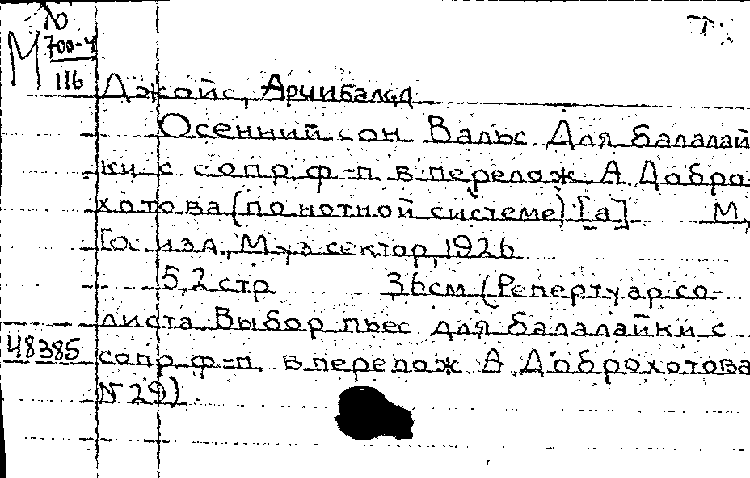 М 700-4
116
Джойс, Арчибалд
Осенний сон Вальс Для балалай
ки с сопр ф-п в перелож А Добро
хотова (по нотной системе) [а] М,
Гос изд, Муз сектор, 1926
5,2 стр 36см (Репертуар со-
листа Выбор пьес для балалайки с
48385 сопр ф-п. в перелож А Доброхотова
№ 29)